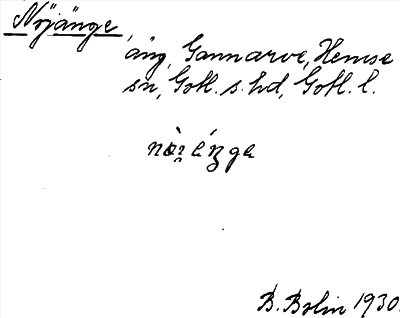 Nöjänge,
äng, Gannarve, Hemse
sn, Gotl. s. hd, Gotl. l.
B. Bolin 1930.